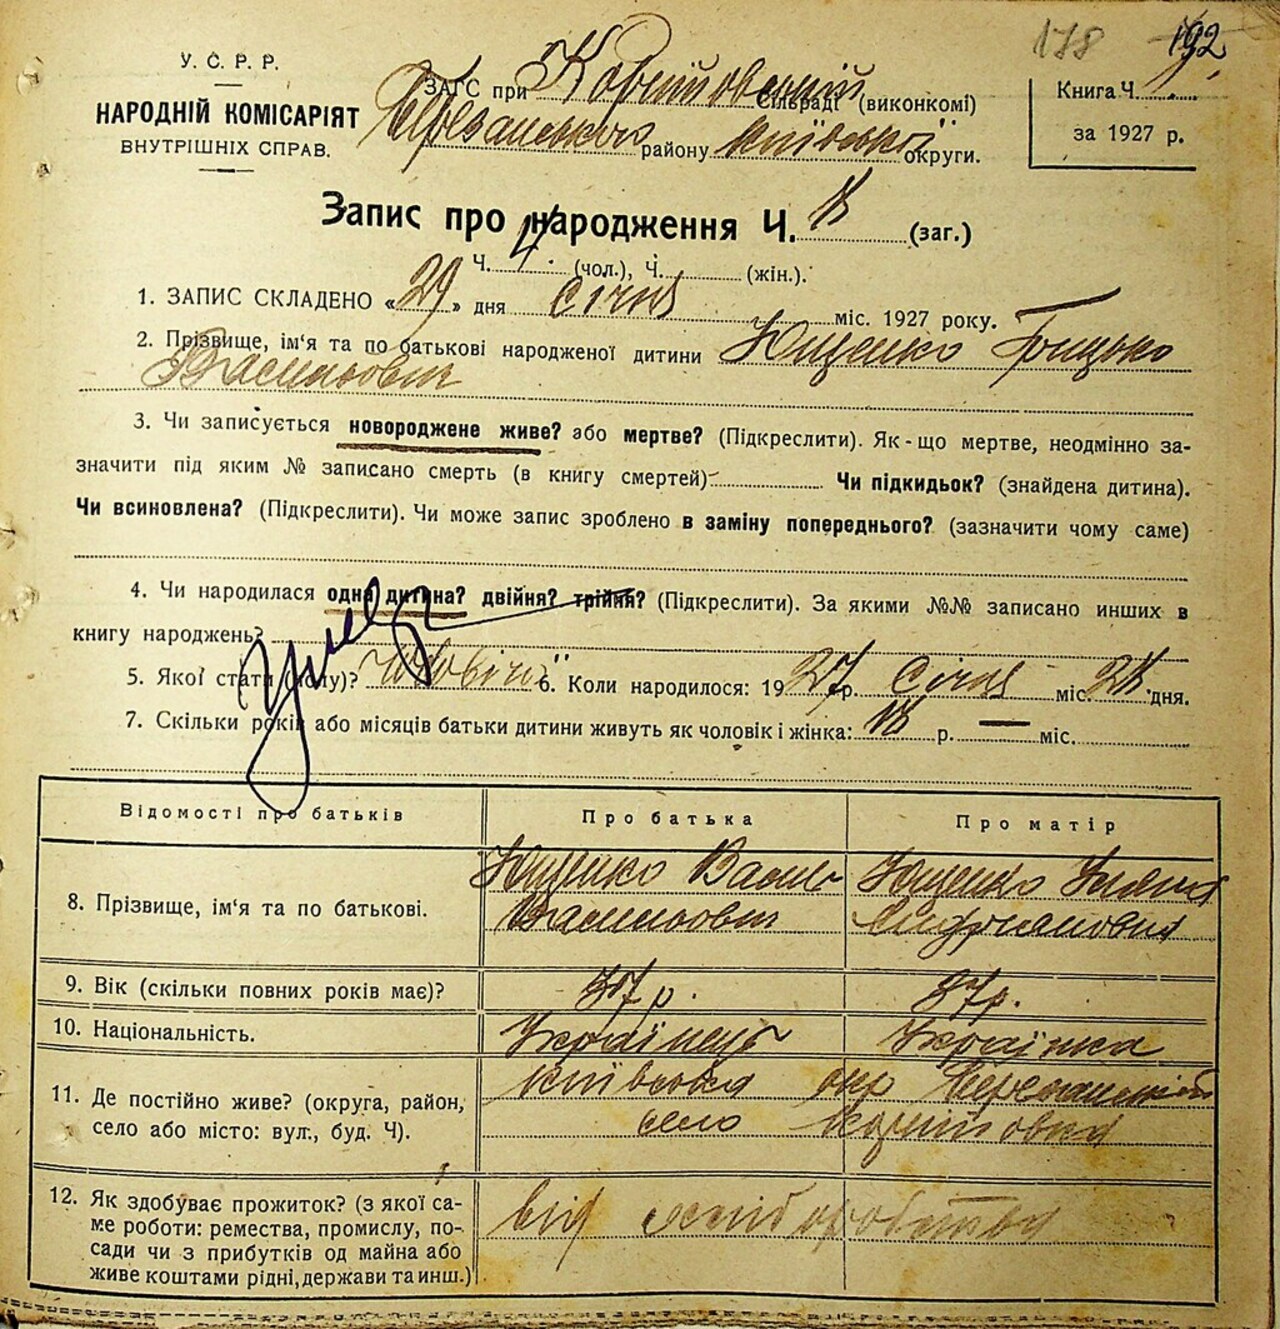 178 192
У. С. Р. Р.
НАРОДНІЙ КОМІСАРІЯТ
ВНУТРІШНІХ СПРАВ.
ЗАГС при Сільраді (виконкомі)
Березанського району Київської округи.
Книга Ч.
за 1927 р.
Запис про народження Ч. (заг.)
Ч. 4 (чол.), Ч. (жін.).
1. ЗАПИС СКЛАДЕНО «29» дня Січня міс. 1927 року.
2. Прізвище, ім'я та по батькові народженої дитини Ющенко Грицько
Васильович
3. Чи записується новороджене живе? або мертве? (Підкреслити). Як-що мертве, неодмінно за-
значити під яким № записано смерть (в книгу смертей) Чи підкидьок? (знайдена дитина).
Чи всиновлена? (Підкреслити). Чи може запис зроблено в заміну попереднього? (зазначити чому саме)
4. Чи народилася одна дитина? двійня? трійня? (Підкреслити). За якими №№ записано инших в
книгу народжень?
5. Якої стати (полу)? Чоловічої 6. Коли народилося: 1927 р. Січня міс. дня.
7. Скільки років або місяців батьки дитини живуть як чоловік і жінка: р. — міс.
Відомості про батьків Про батька Про матір
8. Прізвище, ім'я та по батькові. Ющенко Василь Васильович Ющенко Уляна
9. Вік (скільки повних років має)? 37 р. 37 р.
10. Національність. Українець Українка
11. Де постійно живе? (округа, район, Київська окр
село або місто: вул., буд. Ч). село
12. Як здобуває прожиток? (з якої са- від хліборобства
ме роботи: ремества, промислу, по-
сади чи з прибутків од майна або
живе коштами рідні, держави та инш.)